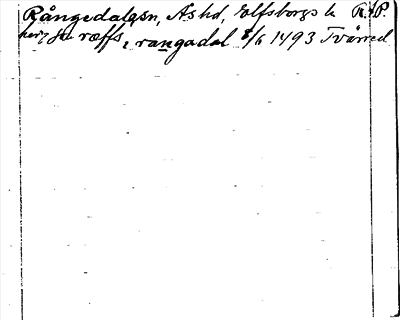 Rångedalasn, Ås hd, Elfsborgs l. R.A.P.
ræffs, rangadal 8/6 1493 Tvärred